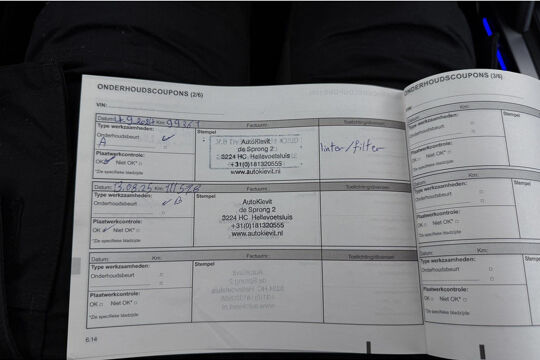 ONDERHOUDSCOUPONS (2/6)
VIN:
Datum: Km: Factuurnr. Toelichting/diversen
Type werkzaamheden: Stempel
Onderhoudsbeurt
A
AutoKievit
de Sprong 2
3224 HC Hellevoetsluis
+31(0)181320555
www.autokievit.nl
Plaatwerkcontrole:
OK Niet OK*
*Zie specifieke bladzijde
Datum: 13.08.25 Km: Factuurnr. Toelichting/diversen
Type werkzaamheden: Stempel
Onderhoudsbeurt
B
AutoKievit
de Sprong 2
3224 HC Hellevoetsluis
+31(0)181320555
www.autokievit.nl
Plaatwerkcontrole:
OK Niet OK*
*Zie specifieke bladzijde
Datum: Km: Factuurnr. Toelichting/diversen
Type werkzaamheden: Stempel
Onderhoudsbeurt
Plaatwerkcontrole:
OK Niet OK*
*Zie specifieke bladzijde
6.14
ONDERHOUDSCOUPONS (3/6)
VIN:
Datum: Km:
Type werkzaamheden: Stempel
Onderhoudsbeurt
Plaatwerkcontrole:
OK Niet OK*
*Zie specifieke bladzijde
Datum: Km:
Type werkzaamheden: Stempel
Onderhoudsbeurt
Plaatwerkcontrole:
OK Niet OK*
*Zie specifieke bladzijde
Datum: Km:
Type werkzaamheden: Stempel
Onderhoudsbeurt
Plaatwerkcontrole:
OK Niet OK*
*Zie specifieke bladzijde